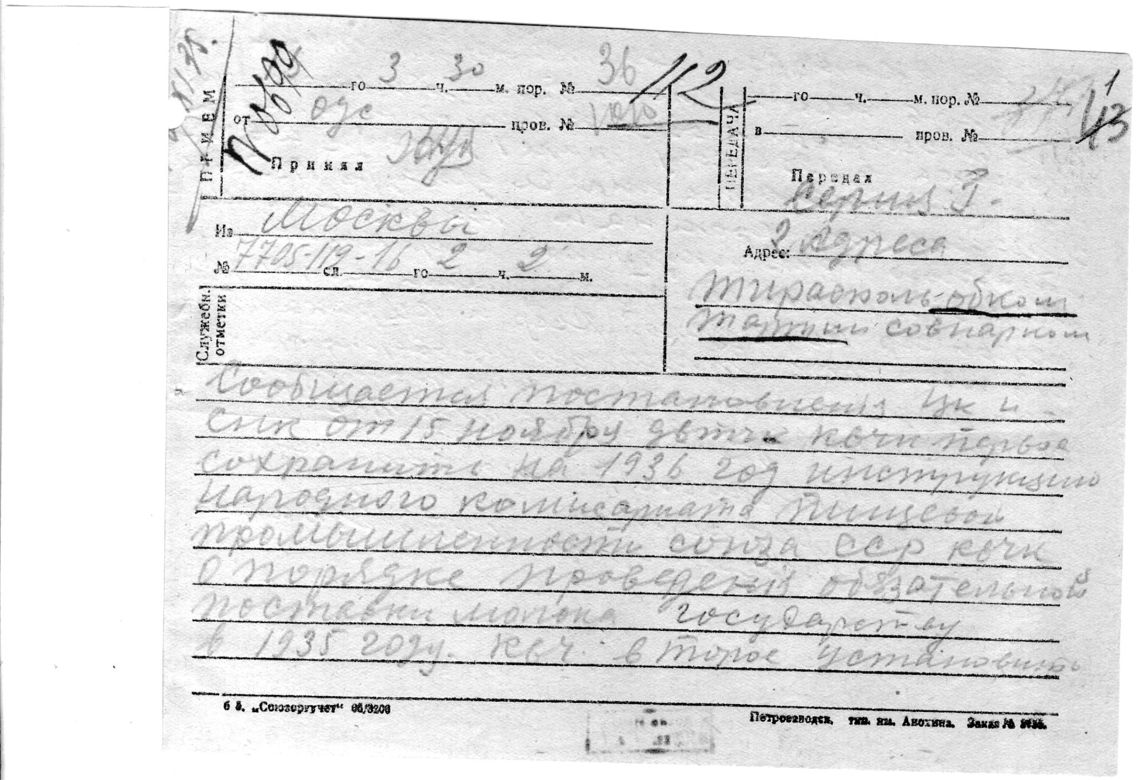 XI 35.
ПРИЕМ
го 3 ч. 30 м. пор. № 36
от одс пров. №
Принял
112
ПЕРЕДАЧА
го ч. м. пор. №
в пров. №
113
Передал
Серия Г.
Из Москвы
№ 7705-119-16 сл. го 2 ч. 2 м.
2 адреса
Адрес:
Тирасполь обком
партии совнарком
Служебн. отметки
Сообщается постановления цк и
снк от 15 ноября двтчк квчк первое
сохранить на 1936 год инструкцию
народного комисариата пищевой
промышленности союза ССР квчк
о порядке проведения обязательной
поставки молока государству
в 1935 году. квч второе установить
б б. „Союзоргучет“ 95/3203
Петрозаводск, тип. им. Анохина. Заказ №